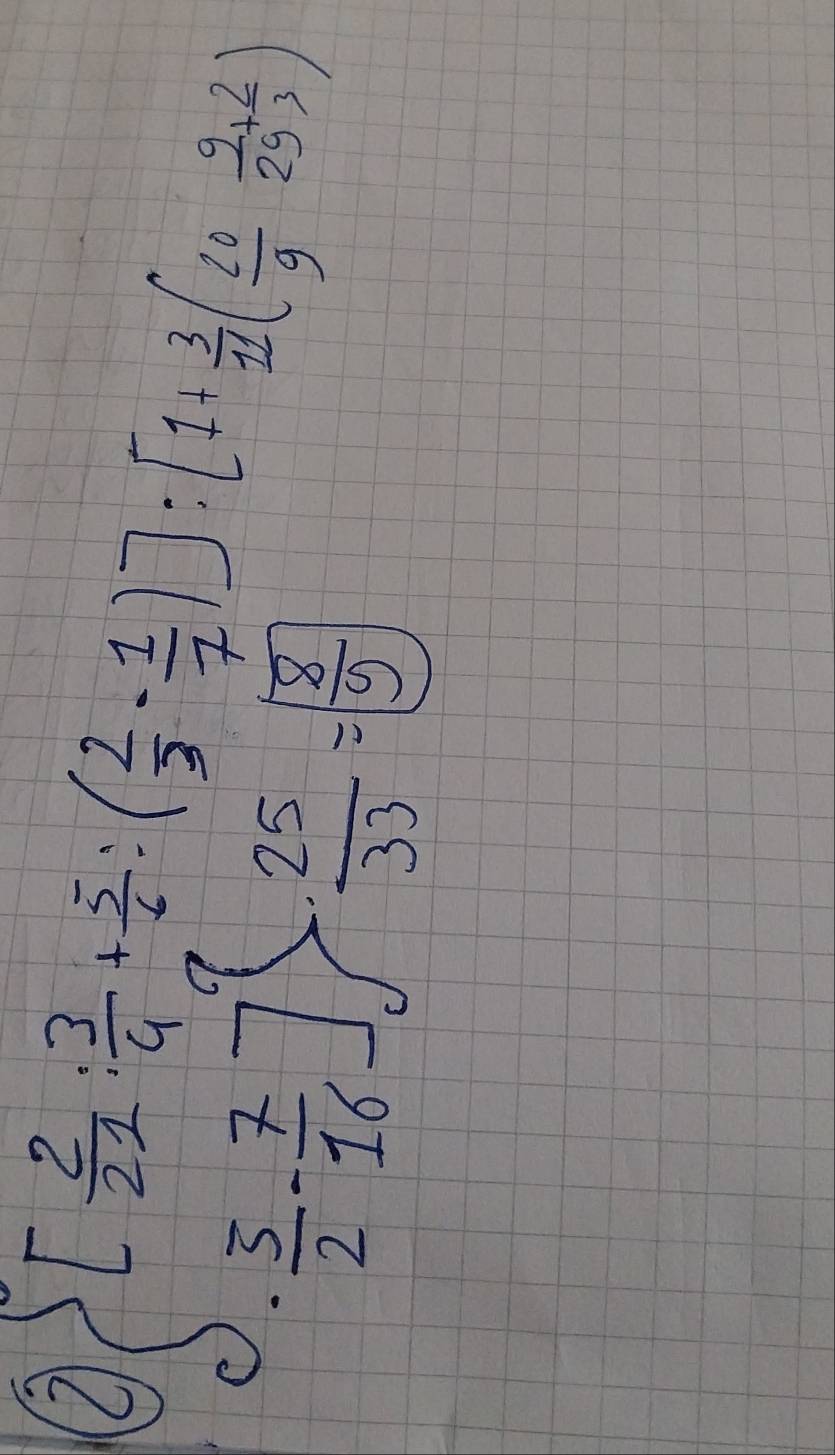 2) { [ 2/21 : 3/4 + 5/6 : ( 2/3 · 1/7 ) ] : [ 1 + 3/11 ( 20/9 9/29 + 2/3 )
· 3/2 · 7/16 ] } · 25/33 = 8/9